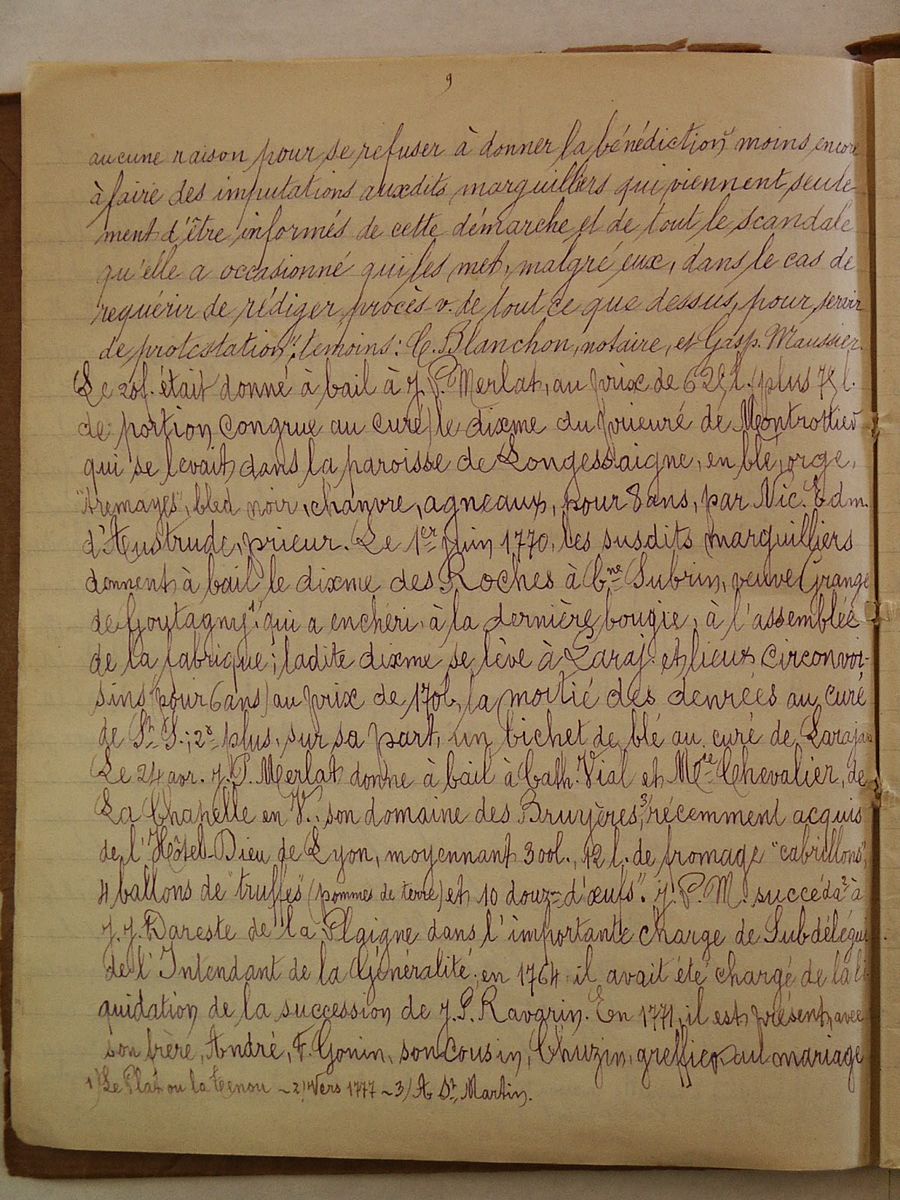 9
aucune raison pour se refuser à donner la bénédiction, moins encore
à faire des imputations auxdits marguilliers qui viennent seule
ment d'être informés de cette démarche et de tout le scandale
qu'elle a occasionné qui les met, malgré eux, dans le cas de
requérir de rédiger procès-v. de tout ce que dessus, pour servir
de protestation", témoins: C. Blanchon, notaire, et Gasp. Maussier.
Le 20 était donné à bail à J. P. Merlat, au prix de l. (plus l.
de portion congrue au curé) le dixme du prieuré de Montrottier
qui se levait dans la paroisse de Longessaigne, en blé, orge,
"tremayes", bled noir, chanvre, agneaux, pour 8 ans, par Nic. Edm.
d'Austrude, prieur. Le 1er juin 1770, les susdits marguilliers
donnent à bail le dixme des Roches à Subrin, veuve Grange
de Goutagny,1) qui a enchéri, à la dernière bougie, à l'assemblée
de la fabrique; ladite dixme se lève à Laraj. et lieux circonvoi-
sins (pour 6 ans) au prix de 170l, la moitié des denrées au curé
de St S.; plus, sur sa part, un bichet de blé au curé de Larajas
Le 24 avr. J. P. Merlat donne à bail à Cath. Vial et Chevalier, de
La Chapelle en V., son domaine des Bruyères,3) récemment acquis
de l'Hôtel-Dieu de Lyon, moyennant 300l., 12 l. de fromage "cabrillons",
4 ballons de "truffes" (pommes de terre) et 10 douz=nes d'œufs". J. P. M. succéda2) à
J. J. Dareste de la Plaigne dans l'importante charge de Subdélégué
de l'Intendant de la Généralité; en 1764 il avait été chargé de la li
quidation de la succession de J. P. Ravarin. En 1771, il est présent, avec
son frère, André, F. Gonin, son cousin, Chuzin, greffier, au mariage
1) Le Plat ou la Tenou ~ 2) Vers 1777 ~ 3) A St Martin.